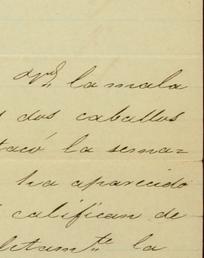 la mala
dos caballos
tacó la sema=
ha aparecido
califican de
letamte la